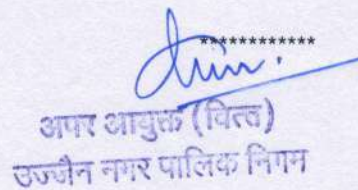 ************
अपर आयुक्त (वित्त)
उज्जैन नगर पालिक निगम